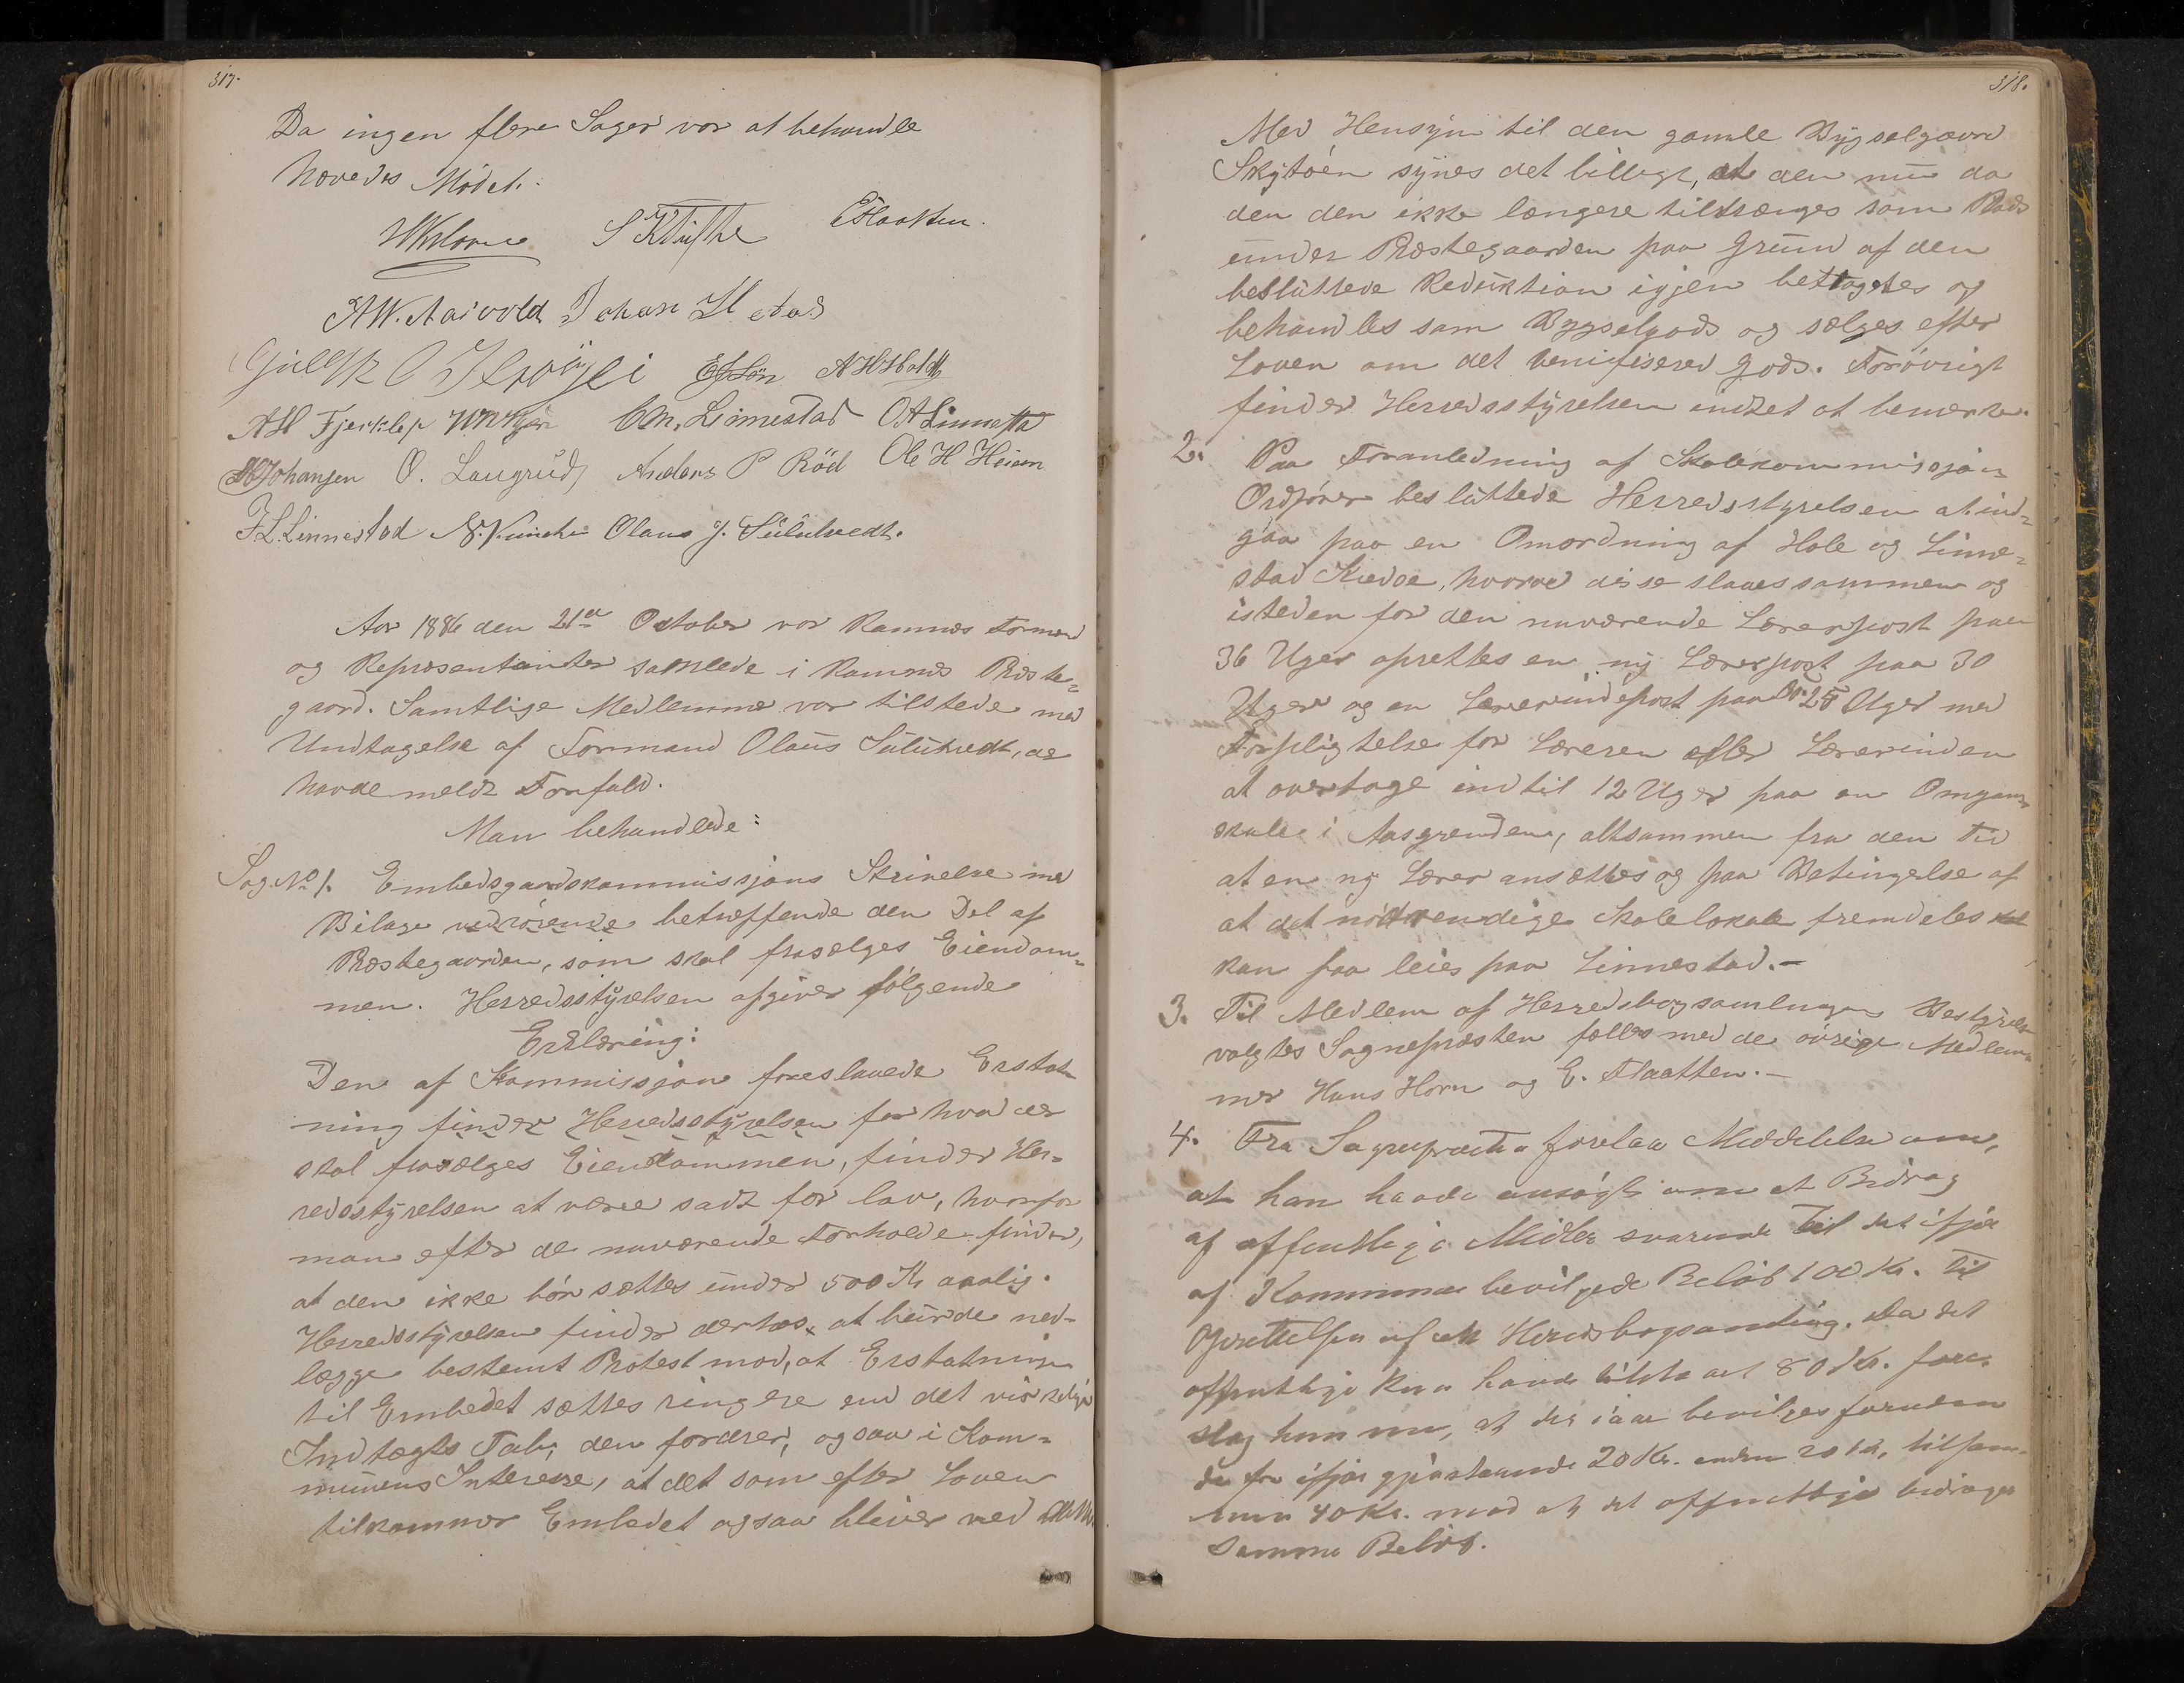 317.
Da ingen flere Sager var at behandle
hævedes Mödet.
E Flaatten.
Johan
CM. Linnestad
Johansen O. Langrud Anders P Röd Ole H Heian
F.L. Linnestad Olaus J. Sulutvedt.
Aar 1886 den 21de October var Ramnæs Formænd
og Repræsentanter samlede i Ramnæs Præste-
gaard. Samtlige Medlemmer var tilstede med
Undtagelse af Formand Olaüs Sülütvedt, der
havde meldt Forfald.
Man behandlede:
Sag No 1. Embedsgaardskommissjons Skrivelse med
Bilage vedrörende betræffende den Del af
Præstegaarden, som skal frasælges Eiendom-
men. Herredsstyrelsen afgiver fölgende
Erklæring:
Den af Kommissjon foreslaaede Erstat-
ning finder Herredsstyrelsen for hvad der
skal frasælges Eiendommen, finder Her-
redsstyrelsen at være sadt for lav, hvorfor
man efter de nuværende Forholde finder,
at den ikke bör sættes ünder 500 Kr aarlig.
Herredsstyrelsen finder derhos at bürde ned-
lægge bestemt Protest mod, at Erstatningen
til Embedet sættes ringere end det virkelige
Indtægts Tab, den fordrer, ogsaa i Kom-
münens Interesse, at det som efter Loven
tilkommer Embedet ogsaa bliver ved dette.
318.
Med Hensyn til den gamle Bygselgaard
Skytöen synes det billigt, at den nü da
den den ikke længere tiltrænges som Plads
ünder Præstegaarden paa Gründ af den
beslüttede Redüktion igjen betragtes og
behandles som Bygselgods og sælges efter
Loven om det benifisered Gods. Forövrigt
finder Herredsstyrelsen indtet at bemærke.
2. Paa Foranledning af Skolekommissjon-
Ordförer beslüttede Herredsstyrelsen at ind-
gaa paa en Omordning af Hole og Linne-
stad Kredse, hvorved disse slaaes sammen og
isteden for den nuværende Lærerpost paa
36 Uger oprettes en ny Lærerpost paa 30
Uger og en Lærerindepost paa 25 Uger med
Forpligtelse for Læreren eller Lærerinden
at overtage indtil 12 Uger paa en Omgangs-
skole i Aasgrenden, altsammen fra den Tid
at en ny Lærer ansættes og paa Betingelse af
at det nödvendige Skolelokale fremdeles
kan faa leies paa Linnestad.—
3. Til Medlem af Herredsbogsamlingens Bestyrelse
valgtes Sognepræsten fælles med de övrige Medlem-
mer Hans Horn og E. Flaatten.—
4. Fra Sognepræsten forelaa Meddelelse om,
at han havde ansögt om et Bidrag
af offentlige Midler svarende til det ifjor
af Kommunen bevilgede Belöb 100 Kr. til
Oprettelsen af en Herredsbogsamling. Da det
offentlige kun havde tilstaaet 80 Kr. fore-
slog han nu, at der iaar bevilges foruden
de fra ifjor gjenstaaende 20 Kr. endnu 20 Kr, tilsam-
men 40 Kr. mod at det offentlige bidrager
samme Belöb.